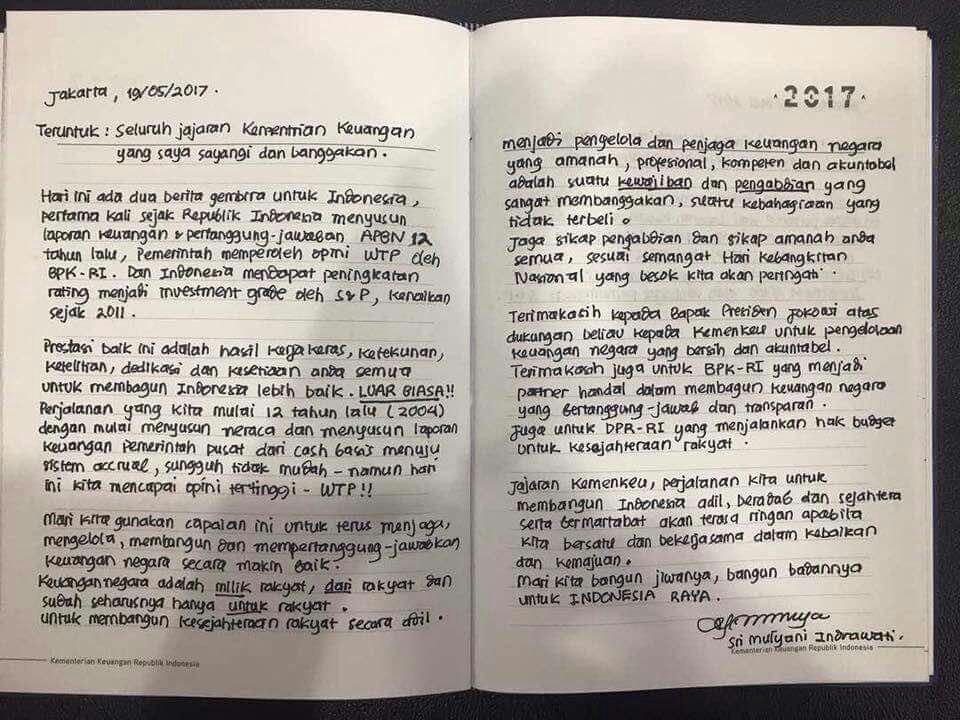 Jakarta, 19/05/2017.
Teruntuk : Seluruh jajaran Kementrian Keuangan
yang saya sayangi dan banggakan.
Hari ini ada dua berita gembira untuk Indonesia,
pertama kali sejak Republik Indonesia menyusun
laporan keuangan & pertanggung-jawaban APBN 12
tahun lalu, Pemerintah memperoleh opini WTP oleh
BPK-RI. Dan Indonesia mendapat peningkatan
rating menjadi investment grade oleh S&P, kenaikan
sejak 2011.
Prestasi baik ini adalah hasil kerja keras, ketekunan,
ketelitian, dedikasi dan kesetiaan anda semua
untuk membagun Indonesia lebih baik. LUAR BIASA!!
Perjalanan yang kita mulai 12 tahun lalu (2004)
dengan mulai menyusun neraca dan menyusun laporan
keuangan Pemerintah pusat dari cash basis menuju
sistem accrual, sungguh tidak mudah - namun hari
ini kita mencapai opini tertinggi - WTP!!
Mari kita gunakan capaian ini untuk terus menjaga,
mengelola, membangun dan mempertanggung-jawabkan
keuangan negara secara makin baik.
Keuangan negara adalah milik rakyat, dari rakyat dan
sudah seharusnya hanya untuk rakyat.
untuk membangun kesejahteraan rakyat secara adil.
Kementerian Keuangan Republik Indonesia
2017
menjadi pengelola dan penjaga keuangan negara
yang amanah, profesional, kompeten dan akuntabel
adalah suatu kewajiban dan pengabdian yang
sangat membanggakan, suatu kebahagiaan yang
tidak terbeli.
Jaga sikap pengabdian dan sikap amanah anda
semua, sesuai semangat Hari Kebangkitan
Nasional yang besok kita akan peringati.
Terimakasih kepada Bapak Presiden Jokowi atas
dukungan beliau kepada Kemenkeu untuk pengelolaan
keuangan negara yang bersih dan akuntabel.
Terimakasih juga untuk BPK-RI yang menjadi
partner handal dalam membagun keuangan negara
yang bertanggung-jawab dan transparan.
Juga untuk DPR-RI yang menjalankan hak budget
untuk kesejahteraan rakyat.
Jajaran Kemenkeu, perjalanan kita untuk
membangun Indonesia adil, beradab dan sejahtera
serta bermartabat akan terasa ringan apabila
kita bersatu dan bekerjasama dalam kebaikan
dan kemajuan.
Mari kita bangun jiwanya, bangun badannya
untuk INDONESIA RAYA.
Sri Mulyani Indrawati.
Kementerian Keuangan Republik Indonesia